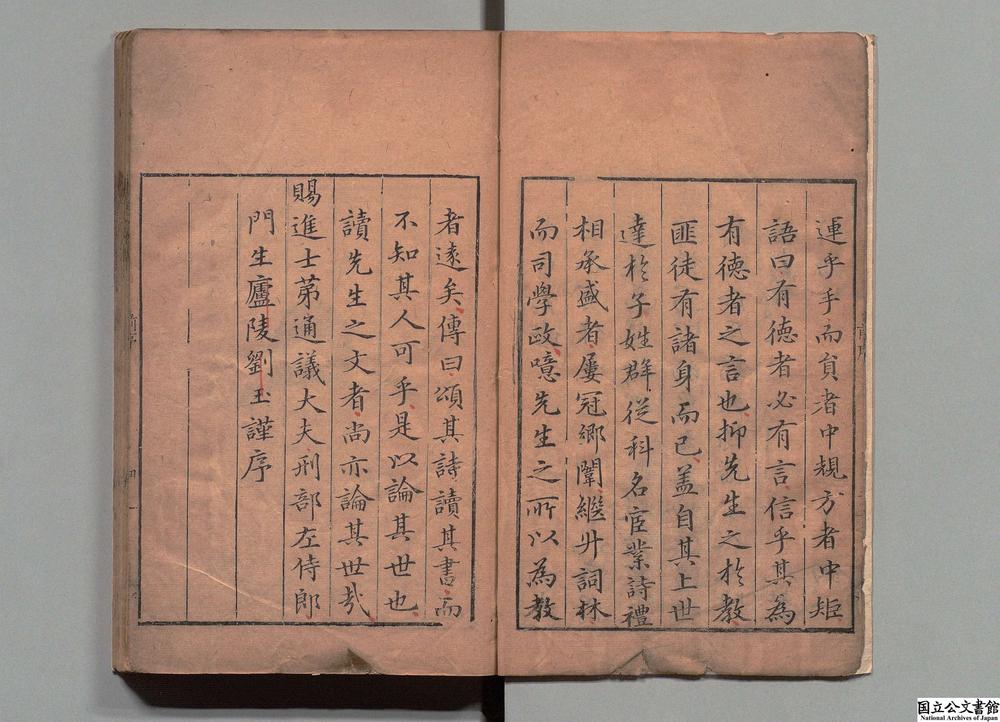 運乎手而員者中規方者中矩
語曰有德者必有言信乎其為
有德者之言也抑先生之於教
匪徒有諸身而已盖自其上世
達於子姓群從科名宦業詩禮
相承盛者屢冠鄉闈繼升詞林
而司學政噫先生之所以為教
者遠矣傳曰頌其詩讀其書而
不知其人可乎是以論其世也
讀先生之文者尚亦論其世哉
賜進士第通議大夫刑部左侍郎
門生廬陵劉玉謹序
国立公文書館
National Archives of Japan